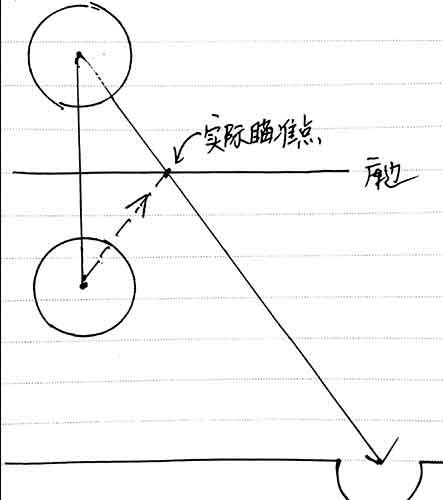 实际瞄准点
库边